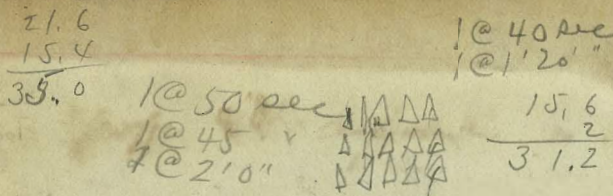 21.6
15.4
35.0
1@50 sec
1@45 "
1@2'0"
1@40 sec
1@1'20"
15.6
2
31.2